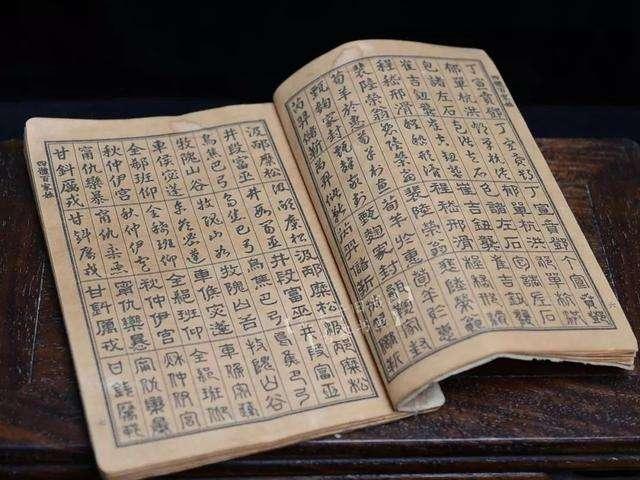 四體百家姓
丁宣賁鄧 丁宣賁鄧 丁宣賁鄧 丁宣賁鄧
郁單杭洪 郁單杭洪 郁單杭洪 郁單杭洪
包諸左石 包諸左石 包諸左石 包諸左石
崔吉鈕龔 崔吉鈕龔 崔吉鈕龔 崔吉鈕龔
程嵇邢滑 程嵇邢滑 程嵇邢滑 程嵇邢滑
裴陸榮翁 裴陸榮翁 裴陸榮翁 裴陸榮翁
荀羊於惠 荀羊於惠 荀羊於惠 荀羊於惠
甄麴家封 甄麴家封 甄麴家封 甄麴家封
芮羿儲靳 芮羿儲靳 芮羿儲靳
汲邴糜松 汲邴糜松 汲邴糜松 汲邴糜松
井段富巫 井段富巫 井段富巫 井段富巫
烏焦巴弓 烏焦巴弓 烏焦巴弓 烏焦巴弓
牧隗山谷 牧隗山谷 牧隗山谷 牧隗山谷
車侯宓蓬 車侯宓蓬 車侯宓蓬 車侯宓蓬
全郗班仰 全郗班仰 全郗班仰 全郗班仰
秋仲伊宮 秋仲伊宮 秋仲伊宮 秋仲伊宮
甯仇欒暴 甯仇欒暴 甯仇欒暴 甯仇欒暴
甘鈄厲戎 甘鈄厲戎 甘鈄厲戎 甘鈄厲戎
四體百家姓